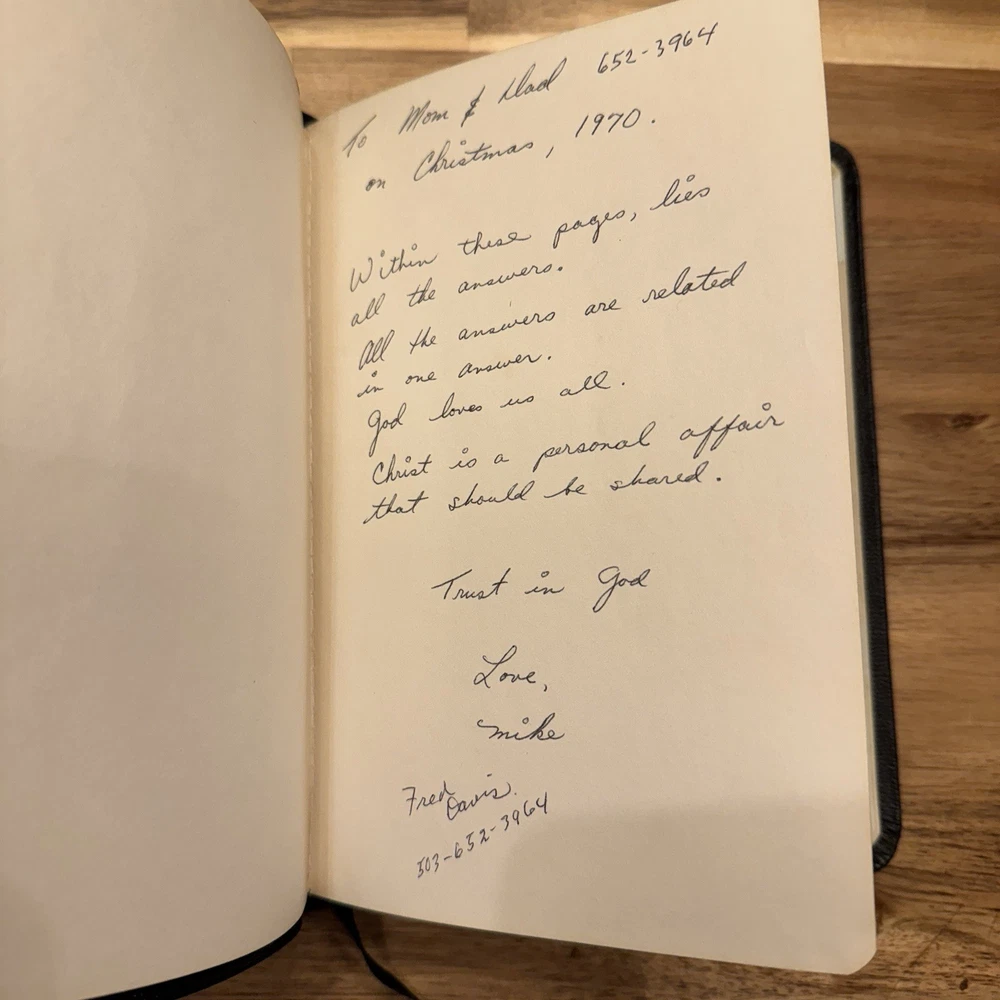 To Mom & Dad 652-3964
on Christmas, 1970.
Within these pages, lies
all the answers.
All the answers are related
in one answer.
God loves us all.
Christ is a personal affair
that should be shared.
Trust in God
Love,
Mike
Fred
Davis.
503-652-3964